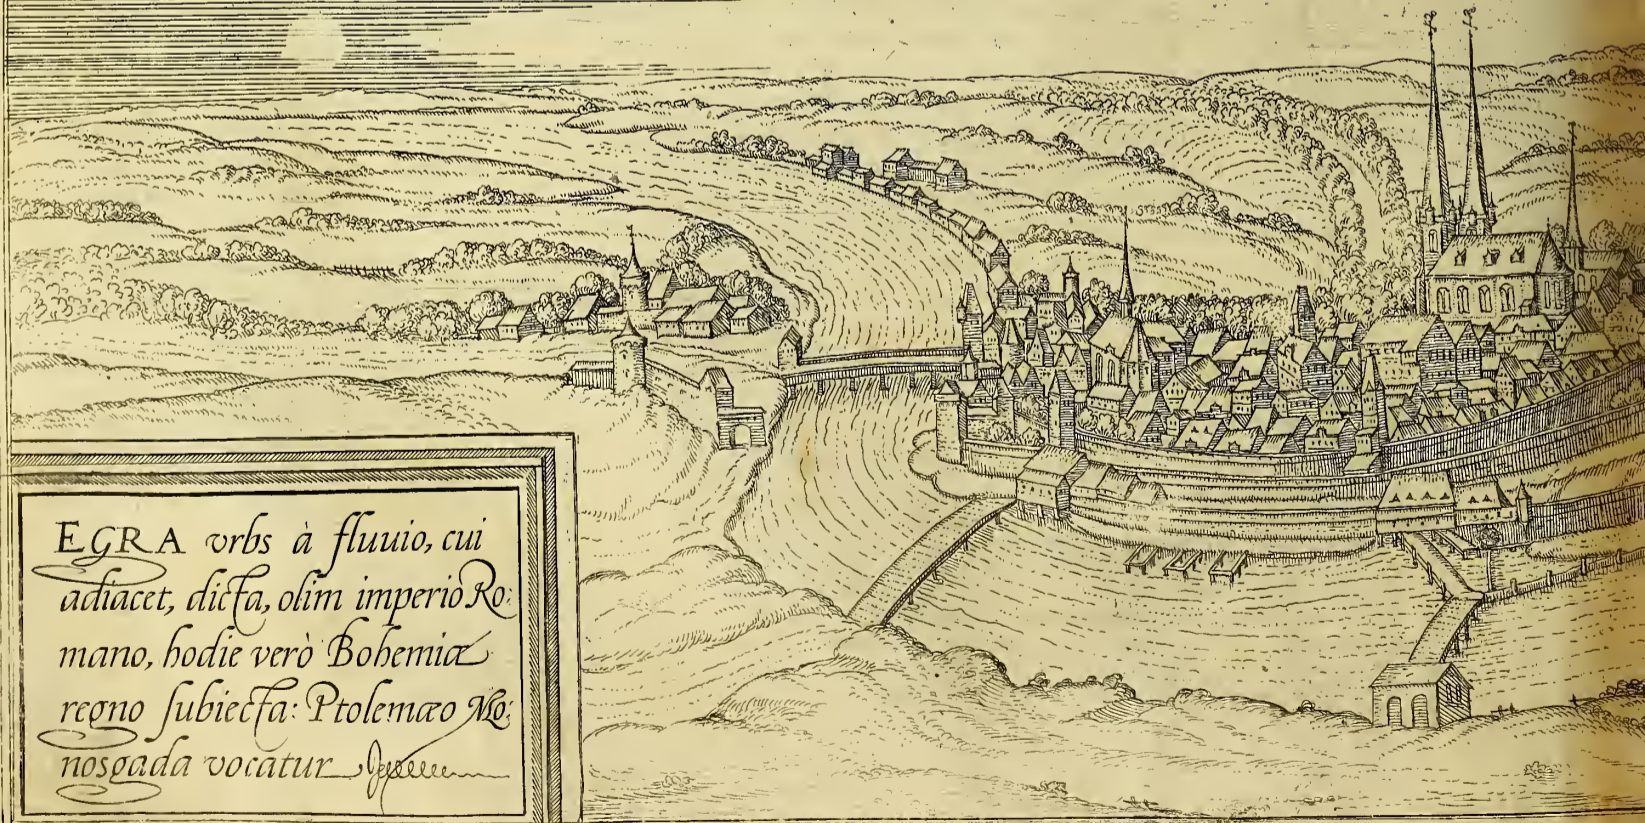 EGRA vrbs à fluuio, cui
adiacet, dicta, olim imperio Ro:
mano, hodie verò Bohemiæ
regno subiecta: Ptolemæo Mo:
nosgada vocatur